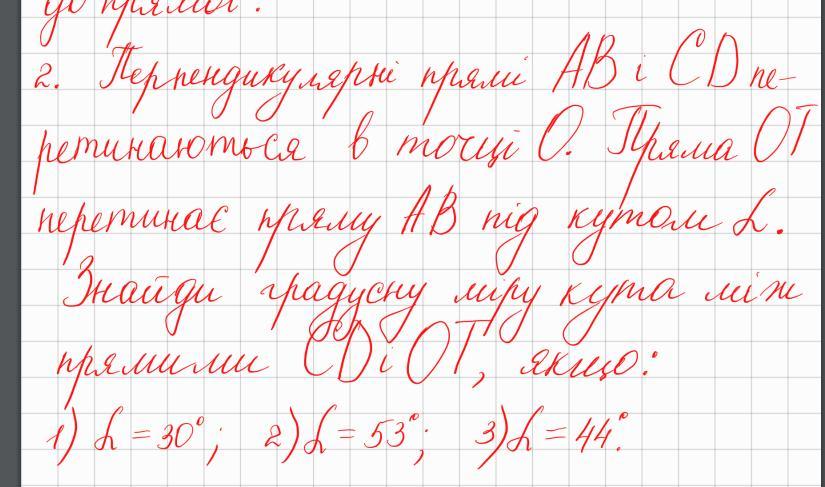 до прямої.
2. Перпендикулярні прямі AB і CD пе-
ретинаються в точці O. Пряма OT
перетинає пряму AB під кутом α.
Знайди градусну міру кута між
прямими CD і OT, якщо:
1) α = 30°; 2) α = 53°; 3) α = 44°.